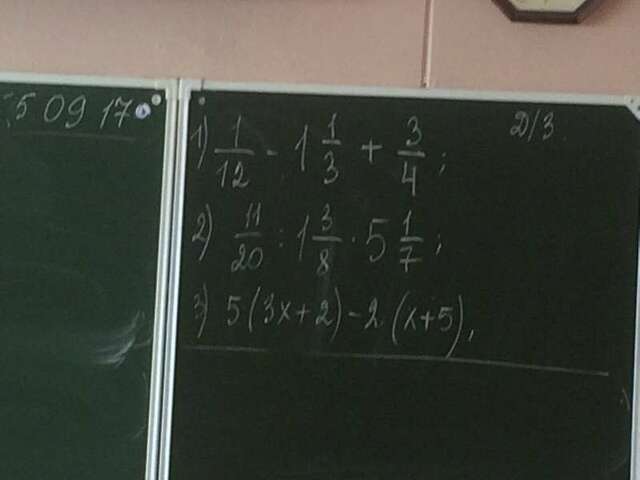 5 09 17
Д/З.
1) 1/12 - 1 1/3 + 3/4;
2) 11/20 : 1 3/8 · 5 1/7;
3) 5(3x+2)-2(x+5),